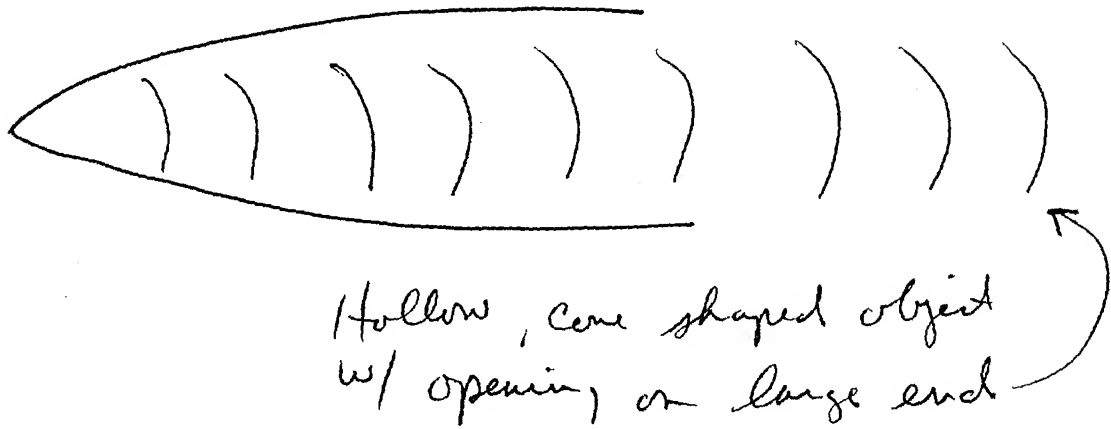 Hollow, cone shaped object
w/ opening on large end